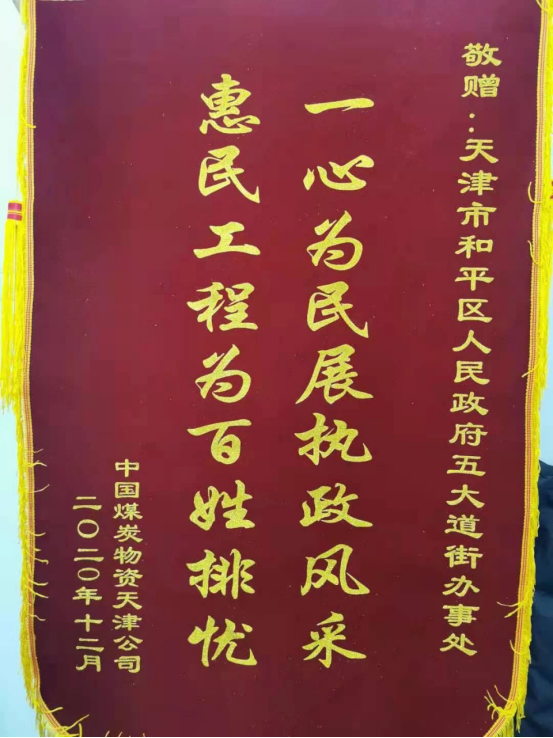 敬赠:天津市和平区人民政府五大道街办事处
一心为民展执政风采
惠民工程为百姓排忧
中国煤炭物资天津公司
二〇二〇年十二月